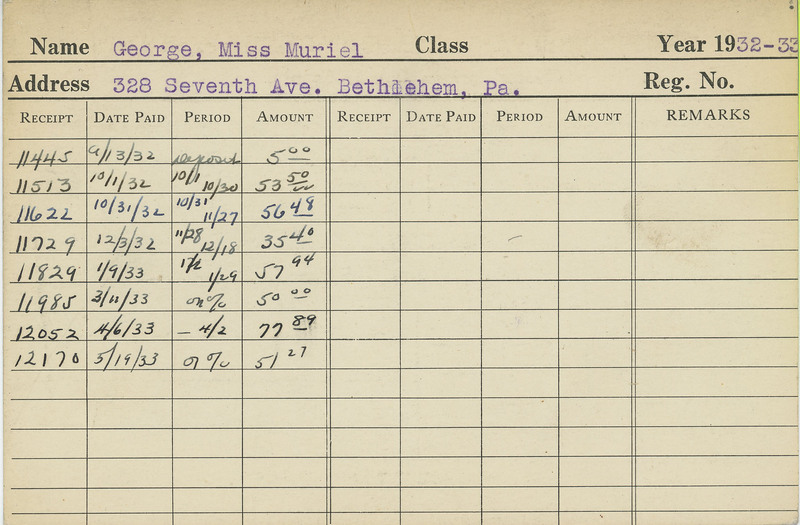 Name George, Miss Muriel Class Year 1932-33
Address 328 Seventh Ave. Bethlehem, Pa. Reg. No.
RECEIPT DATE PAID PERIOD AMOUNT RECEIPT DATE PAID PERIOD AMOUNT REMARKS
11445 9/13/32 deposit 5 00
11513 10/1/32 10/1 10/30 53 50
11622 10/31/32 10/31 11/27 56 48
11729 12/3/32 11/28 12/18 35 40
11829 1/9/33 1/2 1/29 57 94
11985 3/11/33 on % 50 00
12052 4/6/33 – 4/2 77 89
12170 5/19/33 on % 51 27